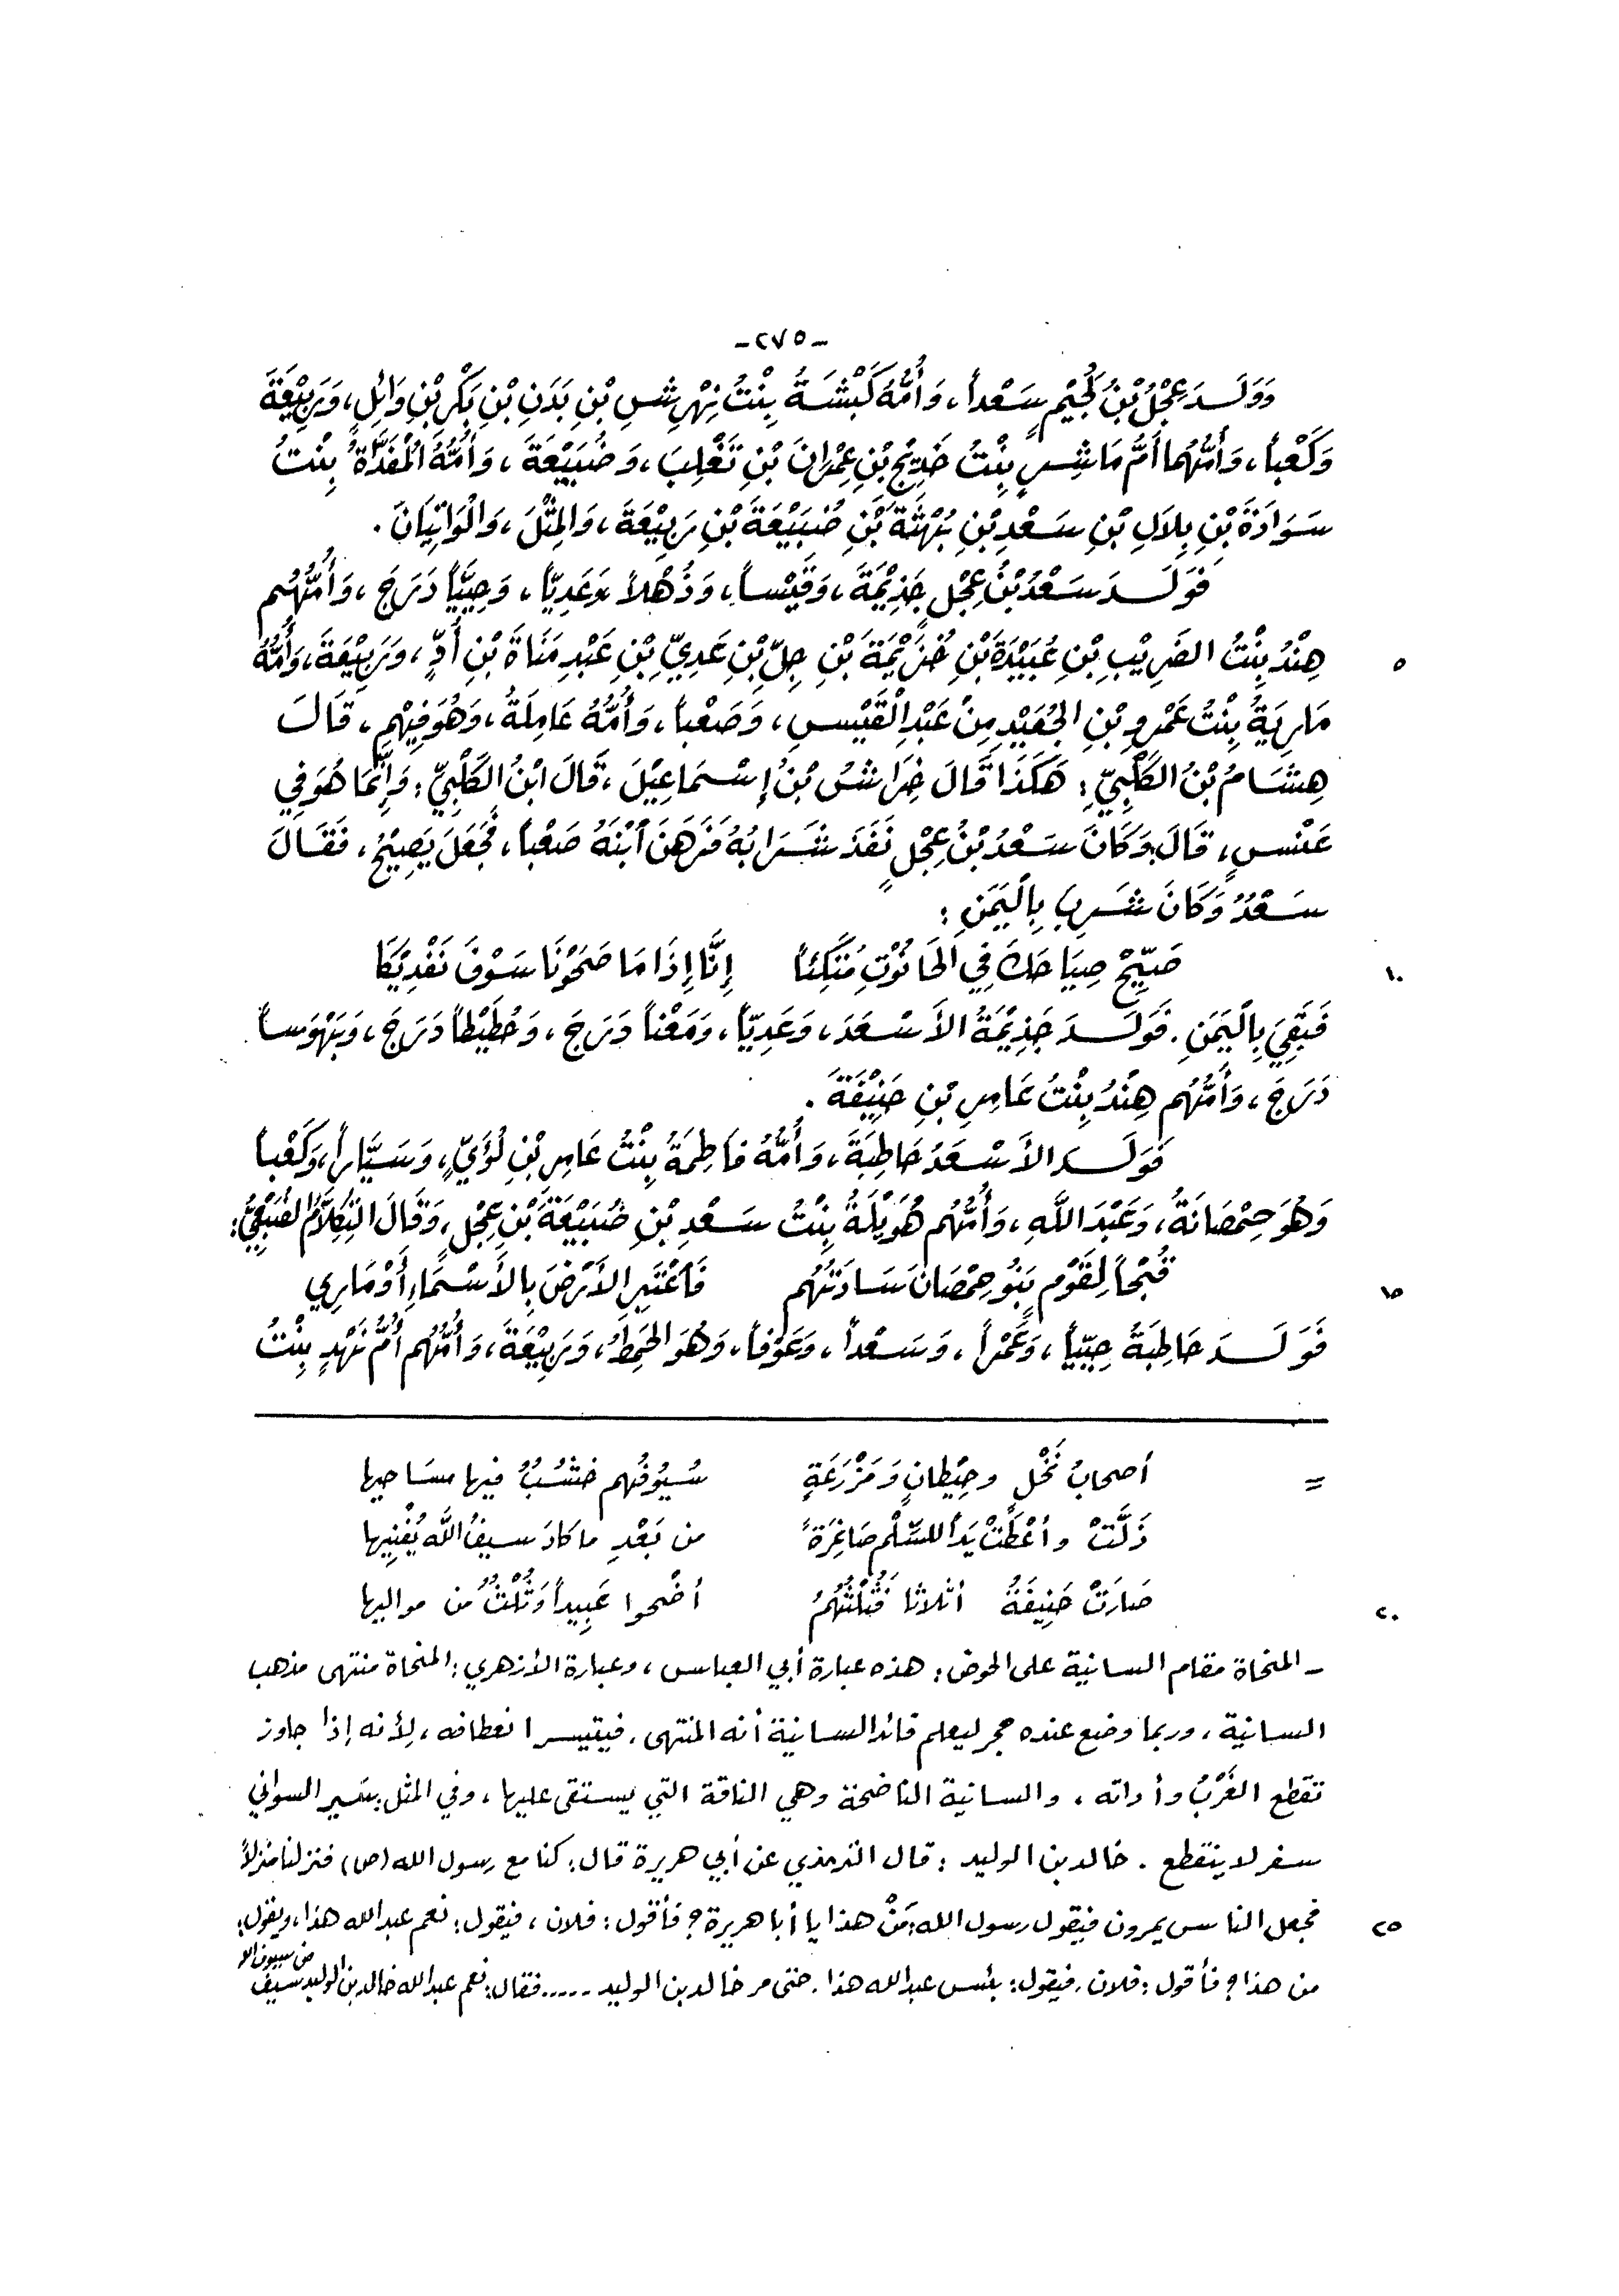 -٢٧٥-
وَوَلَدَ عِجْلُ بْنُ لُجَيْمٍ سَعْداً، وَأُمُّهُ كَبْشَةُ بِنْتُ نِهْرِشِ بْنِ بَدَنِ بْنِ بَكْرِ بْنِ وَائِلٍ، وَرَبِيْعَةَ
وَكَعْباً، وَأُمُّهُما أُمُّ مَاشِسٍ بِنْتُ خَدِيْجِ بْنِ عِمْرانَ بْنِ تَغْلِبَ، وَضُبَيْعَةَ، وَأُمُّهُ المُفَدَّاةُ بِنْتُ
سَوَادَةَ بْنِ بِلاَلِ بْنِ سَعْدِ بْنِ بُهْثَةَ بْنِ ضُبَيْعَةَ بْنِ رَبِيْعَةَ، وَالمِثْلَ، وَالْوَانِيَانَ.
فَوَلَدَ سَعْدُ بْنُ عِجْلٍ جَذِيْمَةَ، وَقَيْساً، وَذُهْلاً وَعَدِيّاً، وَحِيَيّاً دَرَجَ، وَأُمُّهُم
٥ هِنْدُ بِنْتُ الضَرِيْبِ بْنِ عُبَيْدَةَ بْنِ خُزَيْمَةَ بْنِ جِلِّ بْنِ عَدِيِّ بْنِ عَبْدِ مَنَاةَ بْنِ أُدٍّ، وَرَبِيْعَةَ، وَأُمُّهُ
مَارِيَةُ بِنْتُ عَمْرِو بْنِ الجُعَيْدِ مِنْ عَبْدِ الْقَيْسِ، وَصَعْباً، وَأُمُّهُ عَامِلَةُ، وَهُوَ فِيْهِم، قَالَ
هِشَامُ بْنُ الكَلْبِيِّ: هَكَذَا قَالَ خِرَاشُ بْنُ إِسْمَاعِيْلَ، قَالَ ابْنُ الكَلْبِيِّ: وَإِنَّمَا هُوَ فِي
عَنْسٍ، قَالَ: وَكَانَ سَعْدُ بْنُ عِجْلٍ نَفَدَ شَرَابُهُ فَرَهَنَ ابْنَهُ صَعْباً، فَجَعَلَ يَصِيْحُ، فَقَالَ
سَعْدٌ وَكَانَ شَرِبَ بِالْيَمَنِ:
١٠ صَيِّحْ صِيَاحَكَ فِي الحَانُوْتِ مُتَّكِئاً إِنَّا إِذَا مَا صَحَوْنَا سَوْفَ نَفْدِيْكَا
فَبَقِيَ بِالْيَمَنِ. فَوَلَدَ جَذِيْمَةُ الأَسْعَدَ، وَعَدِيّاً، وَمَعْناً دَرَجَ، وَحُطَيْطاً دَرَجَ، وَبَهْوَساً
دَرَجَ، وَأُمُّهُم هِنْدُ بِنْتُ عَامِرِ بْنِ حَنِيْفَةَ.
فَوَلَدَ الأَسْعَدُ حَاطِبَةَ، وَأُمُّهُ فَاطِمَةُ بِنْتُ عَامِرِ بْنِ لُؤَيٍّ، وَسَيَّاراً، وَكَعْباً
وَهُوَ حِمْصَانَةُ، وَعَبْدَ اللَّهِ، وَأُمُّهُم هُوَيْلَةُ بِنْتُ سَعْدِ بْنِ ضُبَيْعَةَ بْنِ عِجْلٍ، وَقَالَ التِكِلاَّمُ الضُبَعِيُّ:
١٥ قُبْحاً لِقَوْمٍ بَنُو حِمْصَانَ سَادَتُهُم فَاعْتَبِرِ الأَرْضَ بِالأَسْمَاءِ أَوْ مَارِي
فَوَلَدَ حَاطِبَةُ حِيَيّاً، وَعَمْراً، وَسَعْداً، وَعَوْفاً، وَهُوَ الحَمِطُ، وَرَبِيْعَةَ، وَأُمُّهُم أُمُّ نَهْدٍ بِنْتُ
= أصحابُ نَخْلٍ وحِيْطانٍ وَمَزْرَعَةٍ سُيُوفُهم خشُبٌ فيها مسَاحيها
ذَلَّتْ وأعْطَتْ يَداً للسِّلْم صَاغِرَةً من بَعْدِ ما كادَ سيفُ اللَّه يُفْنِيها
٢٠ صَارَتْ حَنِيفَةُ أثلاثا فَثُلْثُهُمُ أضْحوا عَبِيداً وَثُلْثٌ من مواليها
- المنحاة مقام السانية على الحوض: هذه عبارة أبي العباس، وعبارة الأزهري: المنحاة منتهى مذهب
السانية، وربما وضع عنده حجر ليعلم قائد السانية أنه المنتهى، فيتيسر انعطافه، لأنه إذا جاوز
تقطع الغَرْبُ وأداته، والسانية الناضحة وهي الناقة التي يستقى عليها، وفي المثل: سَير السواني
سفر لا ينقطع. خالد بن الوليد: قال الترمذي عن أبي هريرة قال: كنا مع رسول الله (ص) فنزلنا منزلاً
٢٥ فجعل الناس يمرون فيقول رسول الله: مَنْ هذا يا أبا هريرة؟ فأقول: فلان، فيقول: نعم عبد الله هذا، ويقول:
من هذا؟ فأقول: فلان، فيقول: بئس عبد الله هذا، حتى مر خالد بن الوليد ..... فقال: نعم عبد الله خالد بن الوليد سيف من سيوف الله